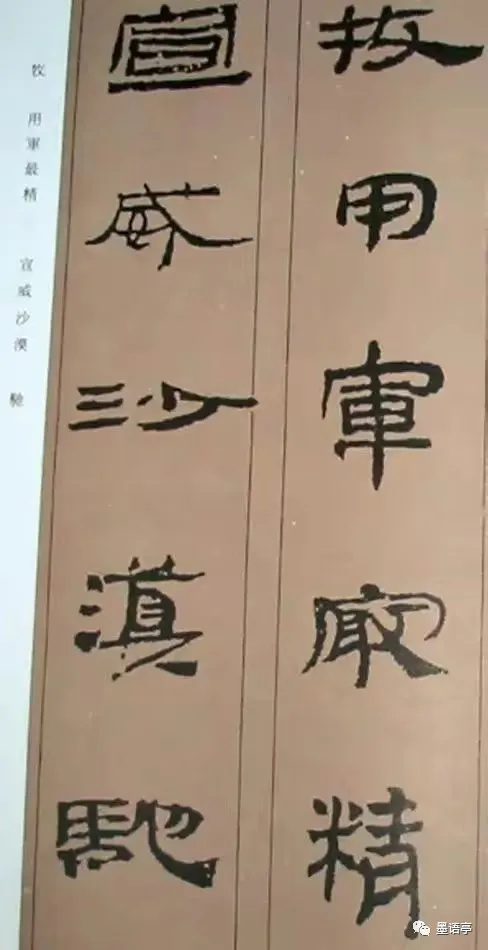 牧用軍最精
宣威沙漠馳
牧 用軍最精 宣威沙漠 馳
墨语亭